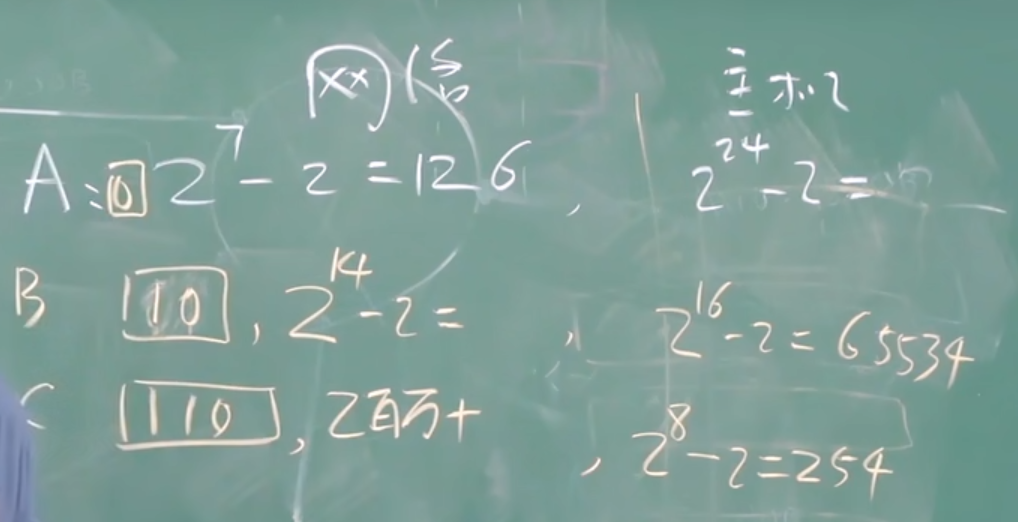 xx
主机
A: 0 2^7 - 2 = 126, 2^24 - 2 =
B 10, 2^14 - 2 = , 2^16 - 2 = 65534
C 110, 2百万+, 2^8 - 2 = 254